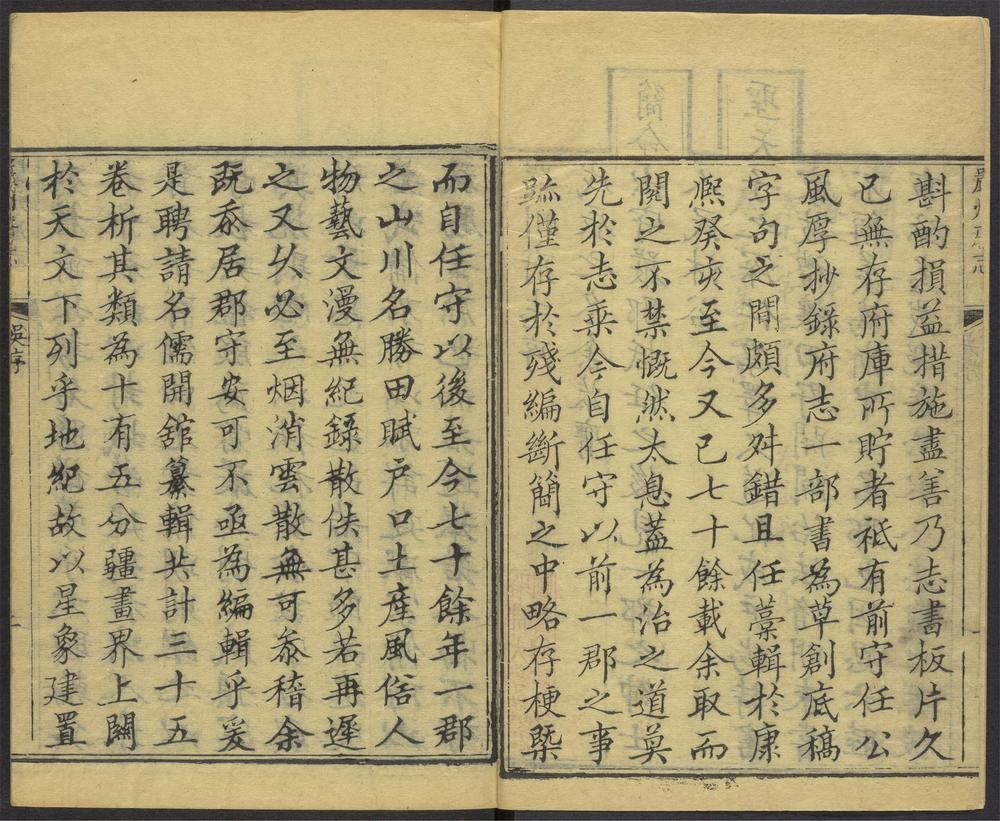 斟酌損益措施盡善乃志書板片久
已無存府庫所貯者祗有前守任公
風厚抄錄府志一部書為草創底稿
字句之間頗多舛錯且任藁輯於康
熈癸亥至今又已七十餘載余取而
閱之不禁慨然太息葢為治之道莫
先於志乘今自任守以前一郡之事
蹟僅存於殘編斷簡之中略存梗槩
而自任守以後至今七十餘年一郡
之山川名勝田賦户口土産風俗人
物藝文漫無紀錄散佚甚多若再遲
之又乆必至烟消雲散無可叅稽余
既忝居郡守安可不亟為編輯乎爰
是聘請名儒開舘纂輯共計三十五
卷析其類為十有五分疆畫界上關
於天文下列乎地紀故以星象建置
吳序